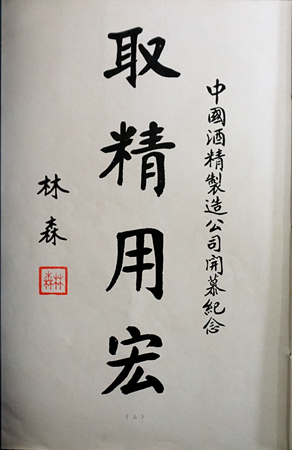 中國酒精製造公司開幕紀念
取精用宏
林森
林森
（二）